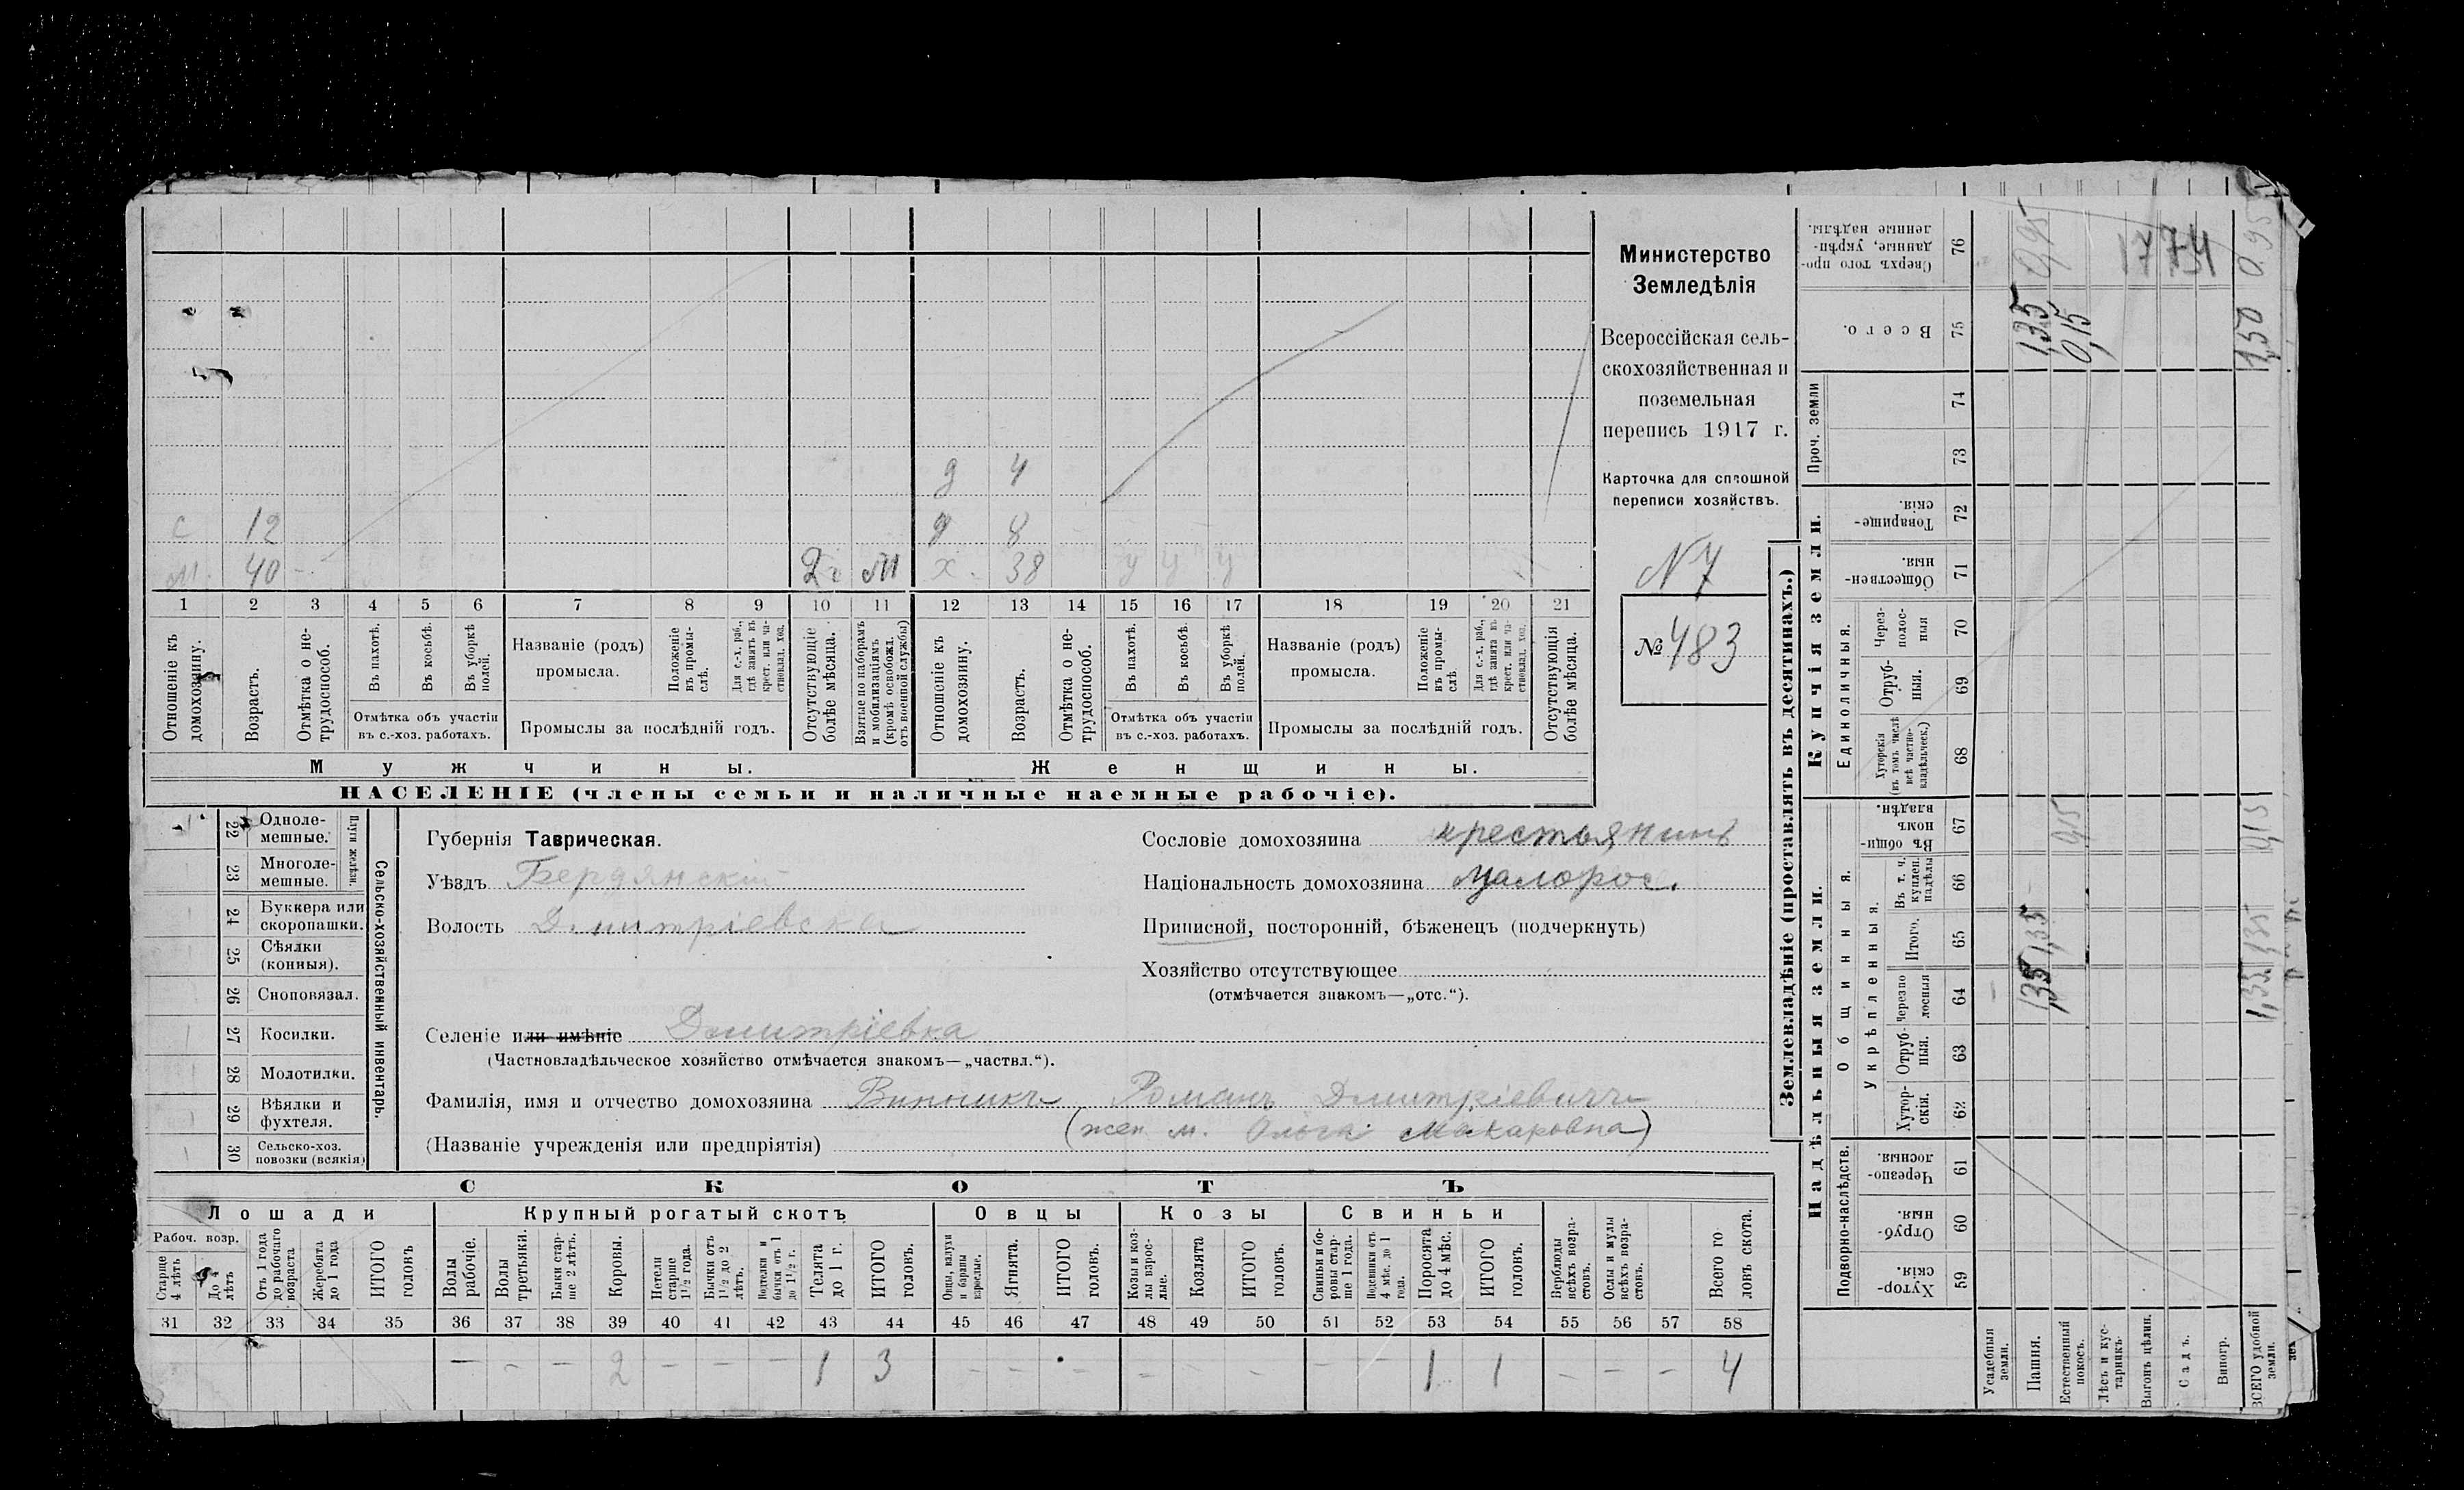 Министерство
Земледѣлія
Всероссійская сель-
скохозяйственная и
поземельная
перепись 1917 г.
Карточка для сплошной
переписи хозяйствъ.
N 7
№ 483
д 4
с 12 д 8
м. 40 М х. 38 у у у
1 2 3 4 5 6 7 8 9 10 11 12 13 14 15 16 17 18 19 20 21
Отношеніе къ домохозяину.
Возрастъ.
Отмѣтка о не-трудоспособ.
Въ пахотѣ.
Въ косьбѣ.
Въ уборкѣ полей.
Отмѣтка объ участіи
въ с.-хоз. работахъ.
Названіе (родъ)
промысла.
Положеніе въ промы-слѣ.
Для с.-х. раб., гдѣ занятъ въ крест. или ча-стновлад. хоз.
Промыслы за послѣдній годъ.
Отсутствующіе болѣе мѣсяца.
Взятые по наборамъ и мобилизаціямъ (кромѣ освобожд. отъ военной службы)
Отношеніе къ домохозяину.
Возрастъ.
Отмѣтка о не-трудоспособ.
Въ пахотѣ.
Въ косьбѣ.
Въ уборкѣ полей.
Отмѣтка объ участіи
въ с.-хоз. работахъ.
Названіе (родъ)
промысла.
Положеніе въ промы-слѣ
Для с.-х. раб., гдѣ занята въ крест. или ча-стновлад. хоз.
Промыслы за послѣдній годъ.
Отсутствующія болѣе мѣсяца.
Мужчины. Женщины.
НАСЕЛЕНІЕ (члены семьи и наличные наемные рабочіе).
22 Одноле-мешные.
23 Многоле-мешные.
Плуги желѣзн.
24 Буккера или скоропашки.
25 Сѣялки (конныя).
26 Сноповязал.
27 Косилки.
28 Молотилки.
29 Вѣялки и фухтеля.
30 Сельско-хоз. повозки (всякія)
Сельско-хозяйственный инвентарь.
Губернія Таврическая.
Уѣздъ Бердянский
Волость Дмитріевска
Селеніе или имѣніе Дмитріевка
(Частновладѣльческое хозяйство отмѣчается знакомъ—„частвл.“).
Сословіе домохозяина крестьянинъ
Національность домохозяина Малорос.
Приписной, посторонній, бѣженецъ (подчеркнуть)
Хозяйство отсутствующее
(отмѣчается знакомъ—„отс.“).
Фамилія, имя и отчество домохозяина Романъ Дмитріевичъ
(жен. м. Ольга Макаровна)
(Названіе учрежденія или предпріятія)
СКОТЪ
Лошади Крупный рогатый скотъ Овцы Козы Свиньи
Рабоч. возр.
Старше 4 лѣтъ
До 4 лѣтъ
Отъ 1 года до рабочаго возраста
Жеребята до 1 года
ИТОГО головъ
Волы рабочіе.
Волы третьяки.
Быки стар-ше 2 лѣтъ.
Коровы.
Нетели старше 1½ года.
Бычки отъ 1½ до 2 лѣтъ.
Нетелки и бычки отъ 1 до 1½ г.
Телята до 1 г.
ИТОГО головъ.
Овцы, валухи и бараны взрослые.
Ягнята.
ИТОГО головъ.
Козы и коз-лы взрос-лые.
Козлята
ИТОГО головъ.
Свиньи и бо-ровы стар-ше 1 года.
Подсвинки отъ 4 мѣс. до 1 года.
Поросята до 4 мѣс.
ИТОГО головъ.
Верблюды всѣхъ возра-стовъ.
Ослы и мулы всѣхъ возра-стовъ.
Всего го-ловъ скота.
31 32 33 34 35 36 37 38 39 40 41 42 43 44 45 46 47 48 49 50 51 52 53 54 55 56 57 58
— - — 2 — — — 1 3 - - - - - - — — 1 1 — - - 4
Землевладѣніе (проставлять въ десятинахъ.)
Надѣльныя земли.
Купчія земли.
Проч. земли
Подворно-наслѣдств.
Общинныя.
Укрѣпленныя.
Единоличныя.
59 Хутор-скія.
60 Отруб-ныя.
61 Черезпо-лосныя.
62 Хутор-скія.
63 Отруб-ныя.
64 Черезпо-лосныя
65 Итого.
66 Въ т. ч. куплен. надѣлы
67 Въ общин-номъ владѣн.
68 Хуторскія (въ томъ числѣ всѣ частно-владѣльческ.)
69 Отруб-ныя.
70 Через-полос-ныя
71 Обществен-ныя.
72 Товарище-скія.
73
74
75 Всего.
76 Сверхъ того про-данные, укрѣп-ленные надѣлы.
Усадебныя земли.
Пашня. 1,35 1,35 1,35 0,95
Естественный покосъ. 0,15 0,15
Лѣсъ и кус-тарникъ.
Выгонъ цѣлин.
Садъ.
Виногр.
ВСЕГО удобной земли. 1,35 1,35 0,15 1,50 0,95
1774